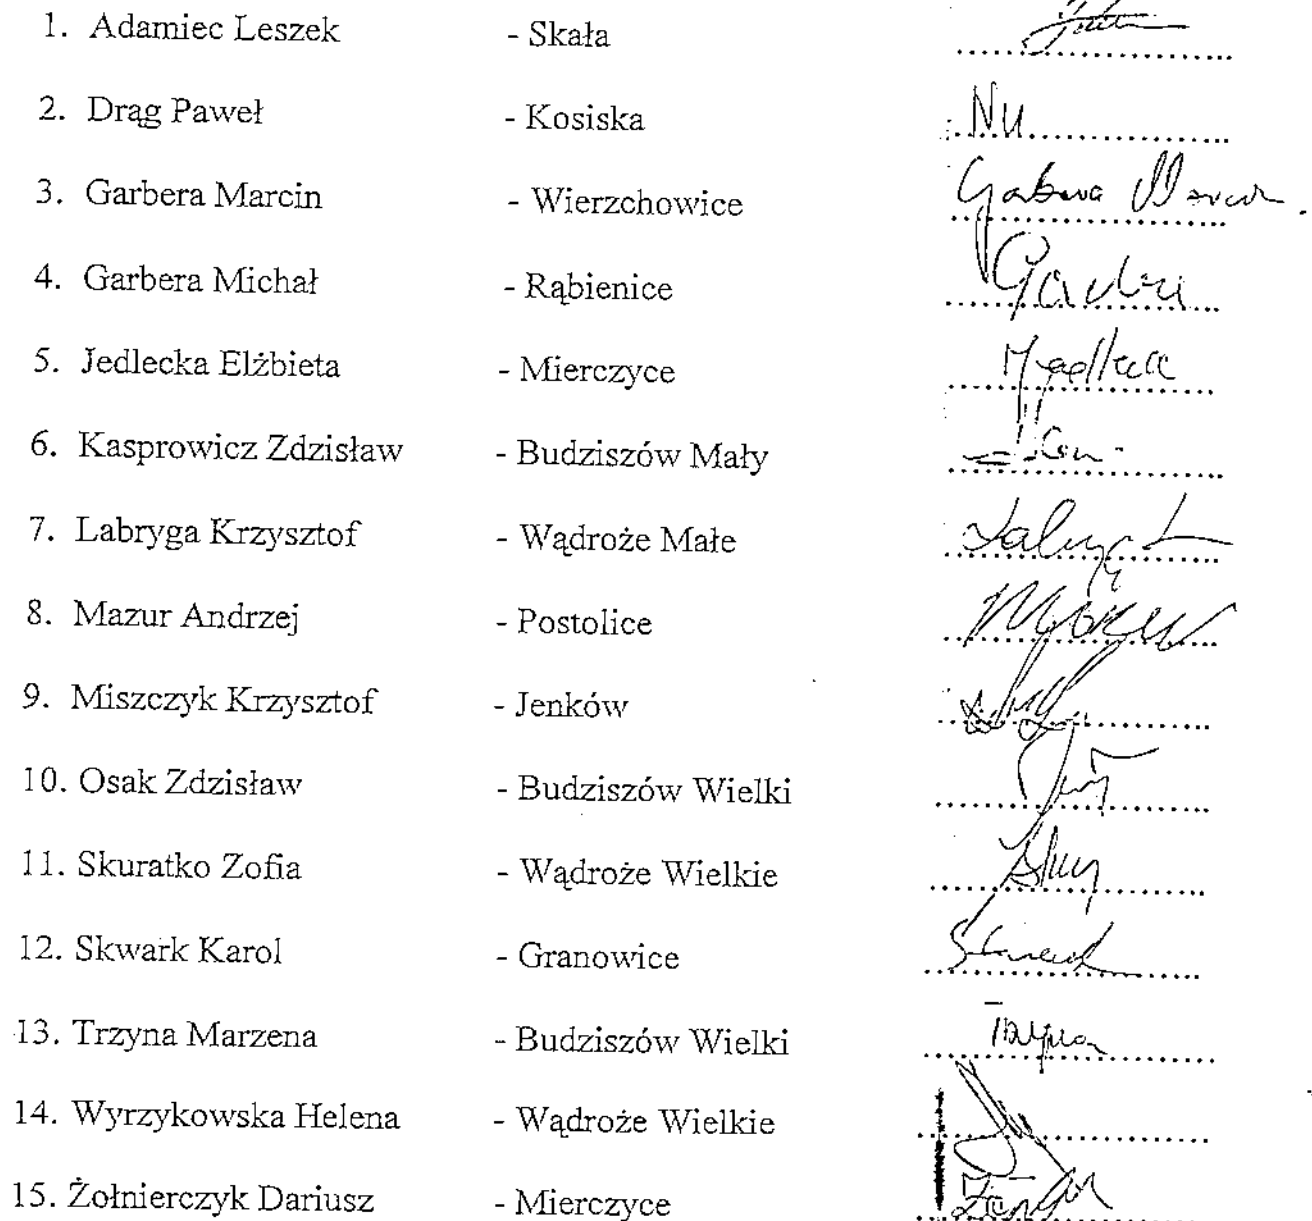 1. Adamiec Leszek - Skała
2. Drąg Paweł - Kosiska Nu
3. Garbera Marcin - Wierzchowice Garbera Marcin
4. Garbera Michał - Rąbienice
5. Jedlecka Elżbieta - Mierczyce
6. Kasprowicz Zdzisław - Budziszów Mały
7. Labryga Krzysztof - Wądroże Małe
8. Mazur Andrzej - Postolice
9. Miszczyk Krzysztof - Jenków
10. Osak Zdzisław - Budziszów Wielki
11. Skuratko Zofia - Wądroże Wielkie
12. Skwark Karol - Granowice
13. Trzyna Marzena - Budziszów Wielki
14. Wyrzykowska Helena - Wądroże Wielkie
15. Żołnierczyk Dariusz - Mierczyce